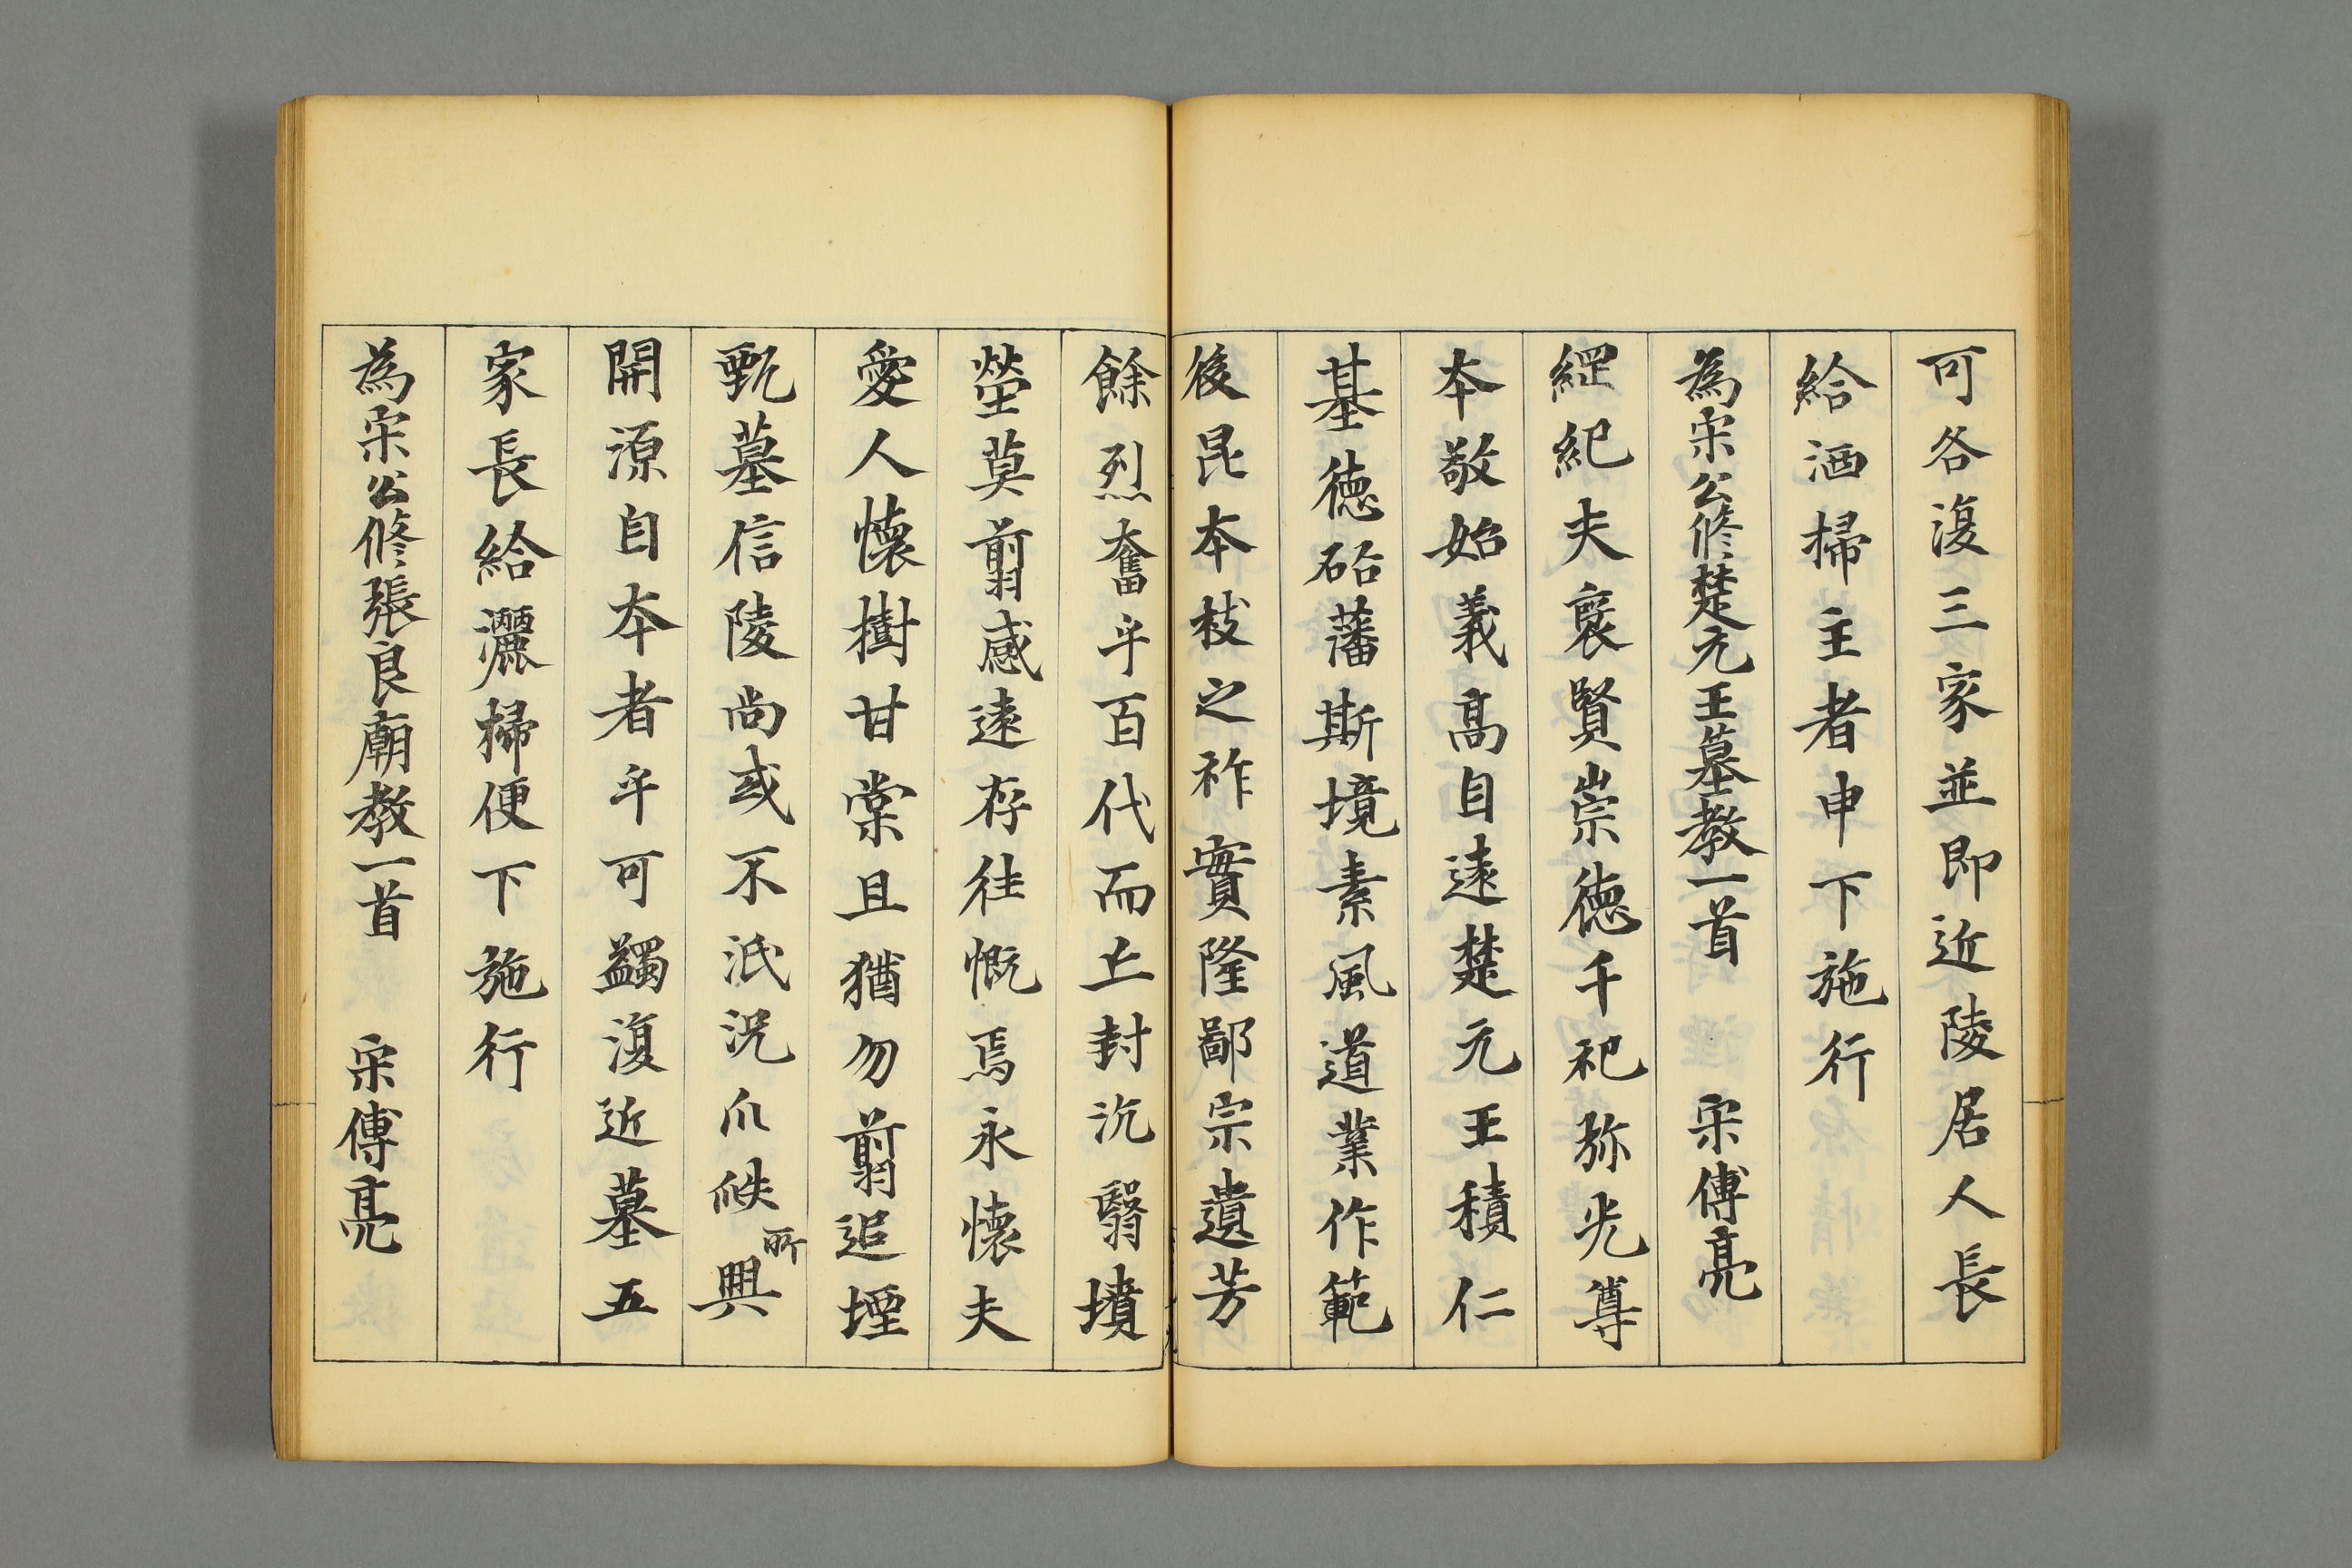 可各復三家並即近陵居人長
給洒掃主者申下施行
為宋公修楚元王墓教一首 宋傅亮
綱紀夫襃賢崇德千祀弥光尊
本敬始義髙自遠楚元王積仁
基德砳藩斯境素風道業作範
後昆本枝之祚實隆鄙宗遺芳
餘烈奮乎百代而丘封沉翳墳
塋莫翦感遠存往慨焉永懷夫
愛人懷樹甘棠且猶勿翦追墟
甄墓信陵尚或不泯況瓜瓞所興
開源自本者乎可蠲復近墓五
家長給灑掃便下施行
為宋公修張良廟教一首 宋傅亮